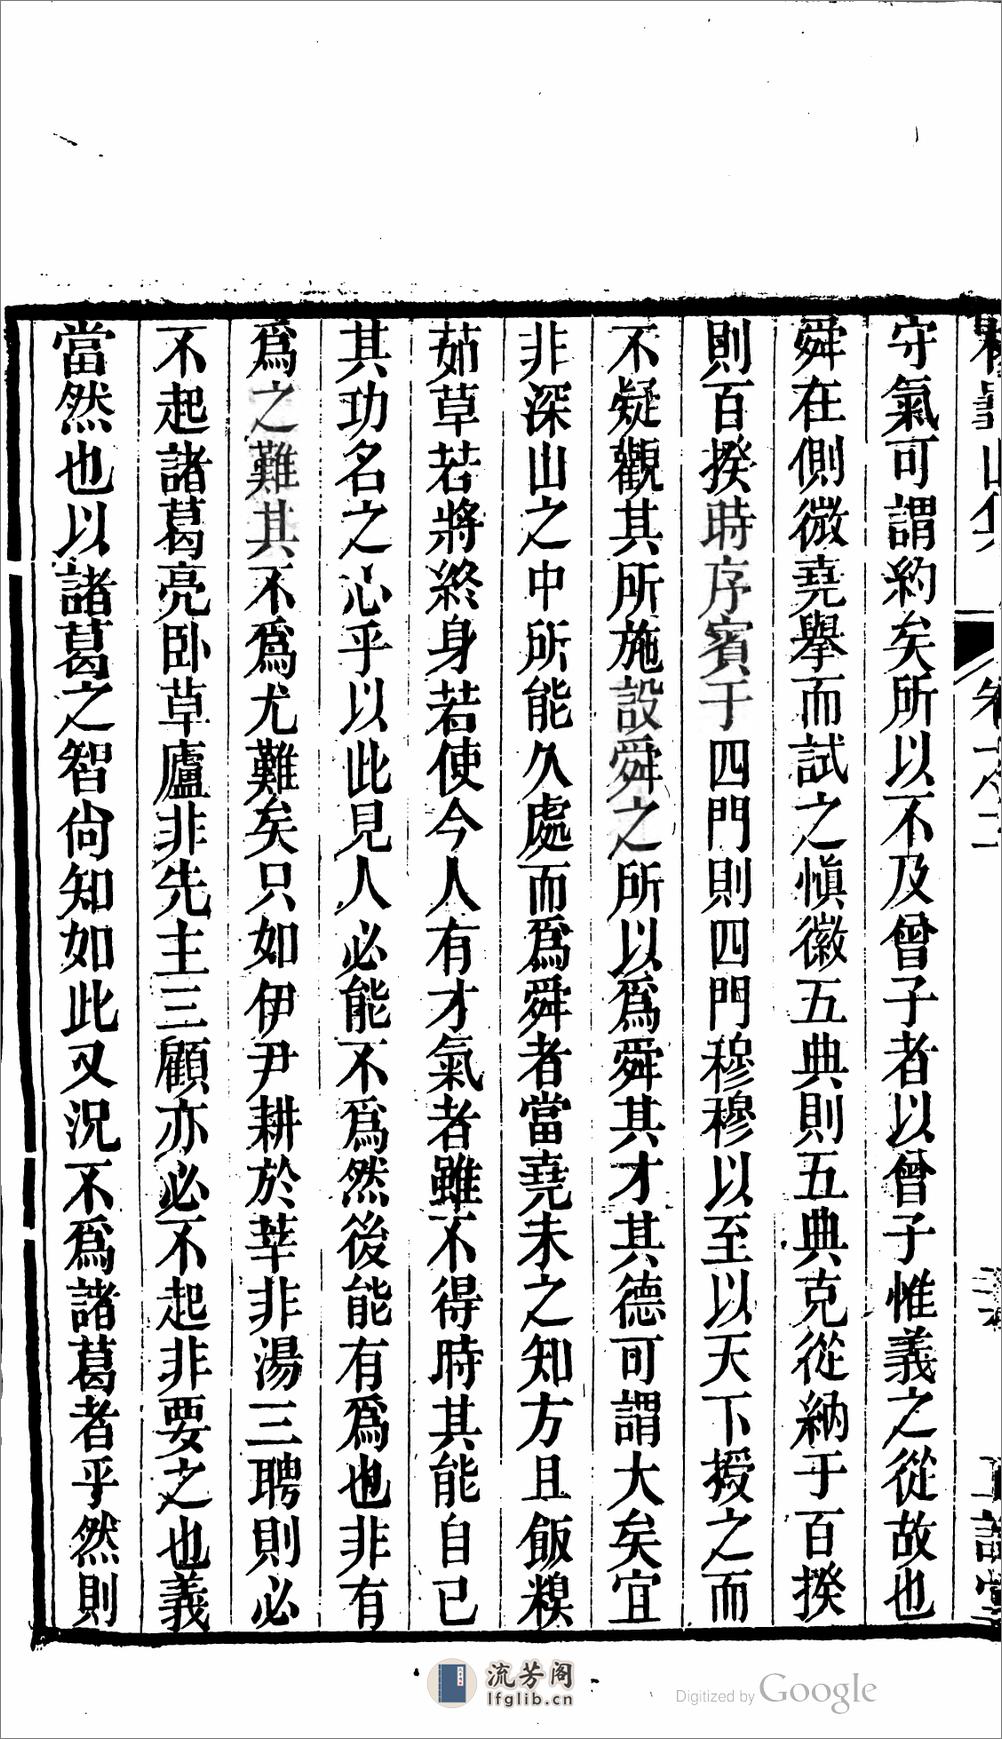 守氣可謂約矣所以不及曾子者以曾子惟義之從故也
舜在側微堯舉而試之慎徽五典則五典克從納于百揆
則百揆時序賓于四門則四門穆穆以至以天下授之而
不疑觀其所施設舜之所以為舜其才其德可謂大矣宜
非深山之中所能久處而為舜者當堯未之知方且飯糗
茹草若將終身若使今人有才氣者雖不得時其能自已
其功名之心乎以此見人必能不為然後能有為也非有
為之難其不為尤難矣只如伊尹耕於莘非湯三聘則必
不起諸葛亮臥草廬非先主三顧亦必不起非要之也義
當然也以諸葛之智尙知如此又況不為諸葛者乎然則
流芳阁
lfglib.cn
Digitized by Google